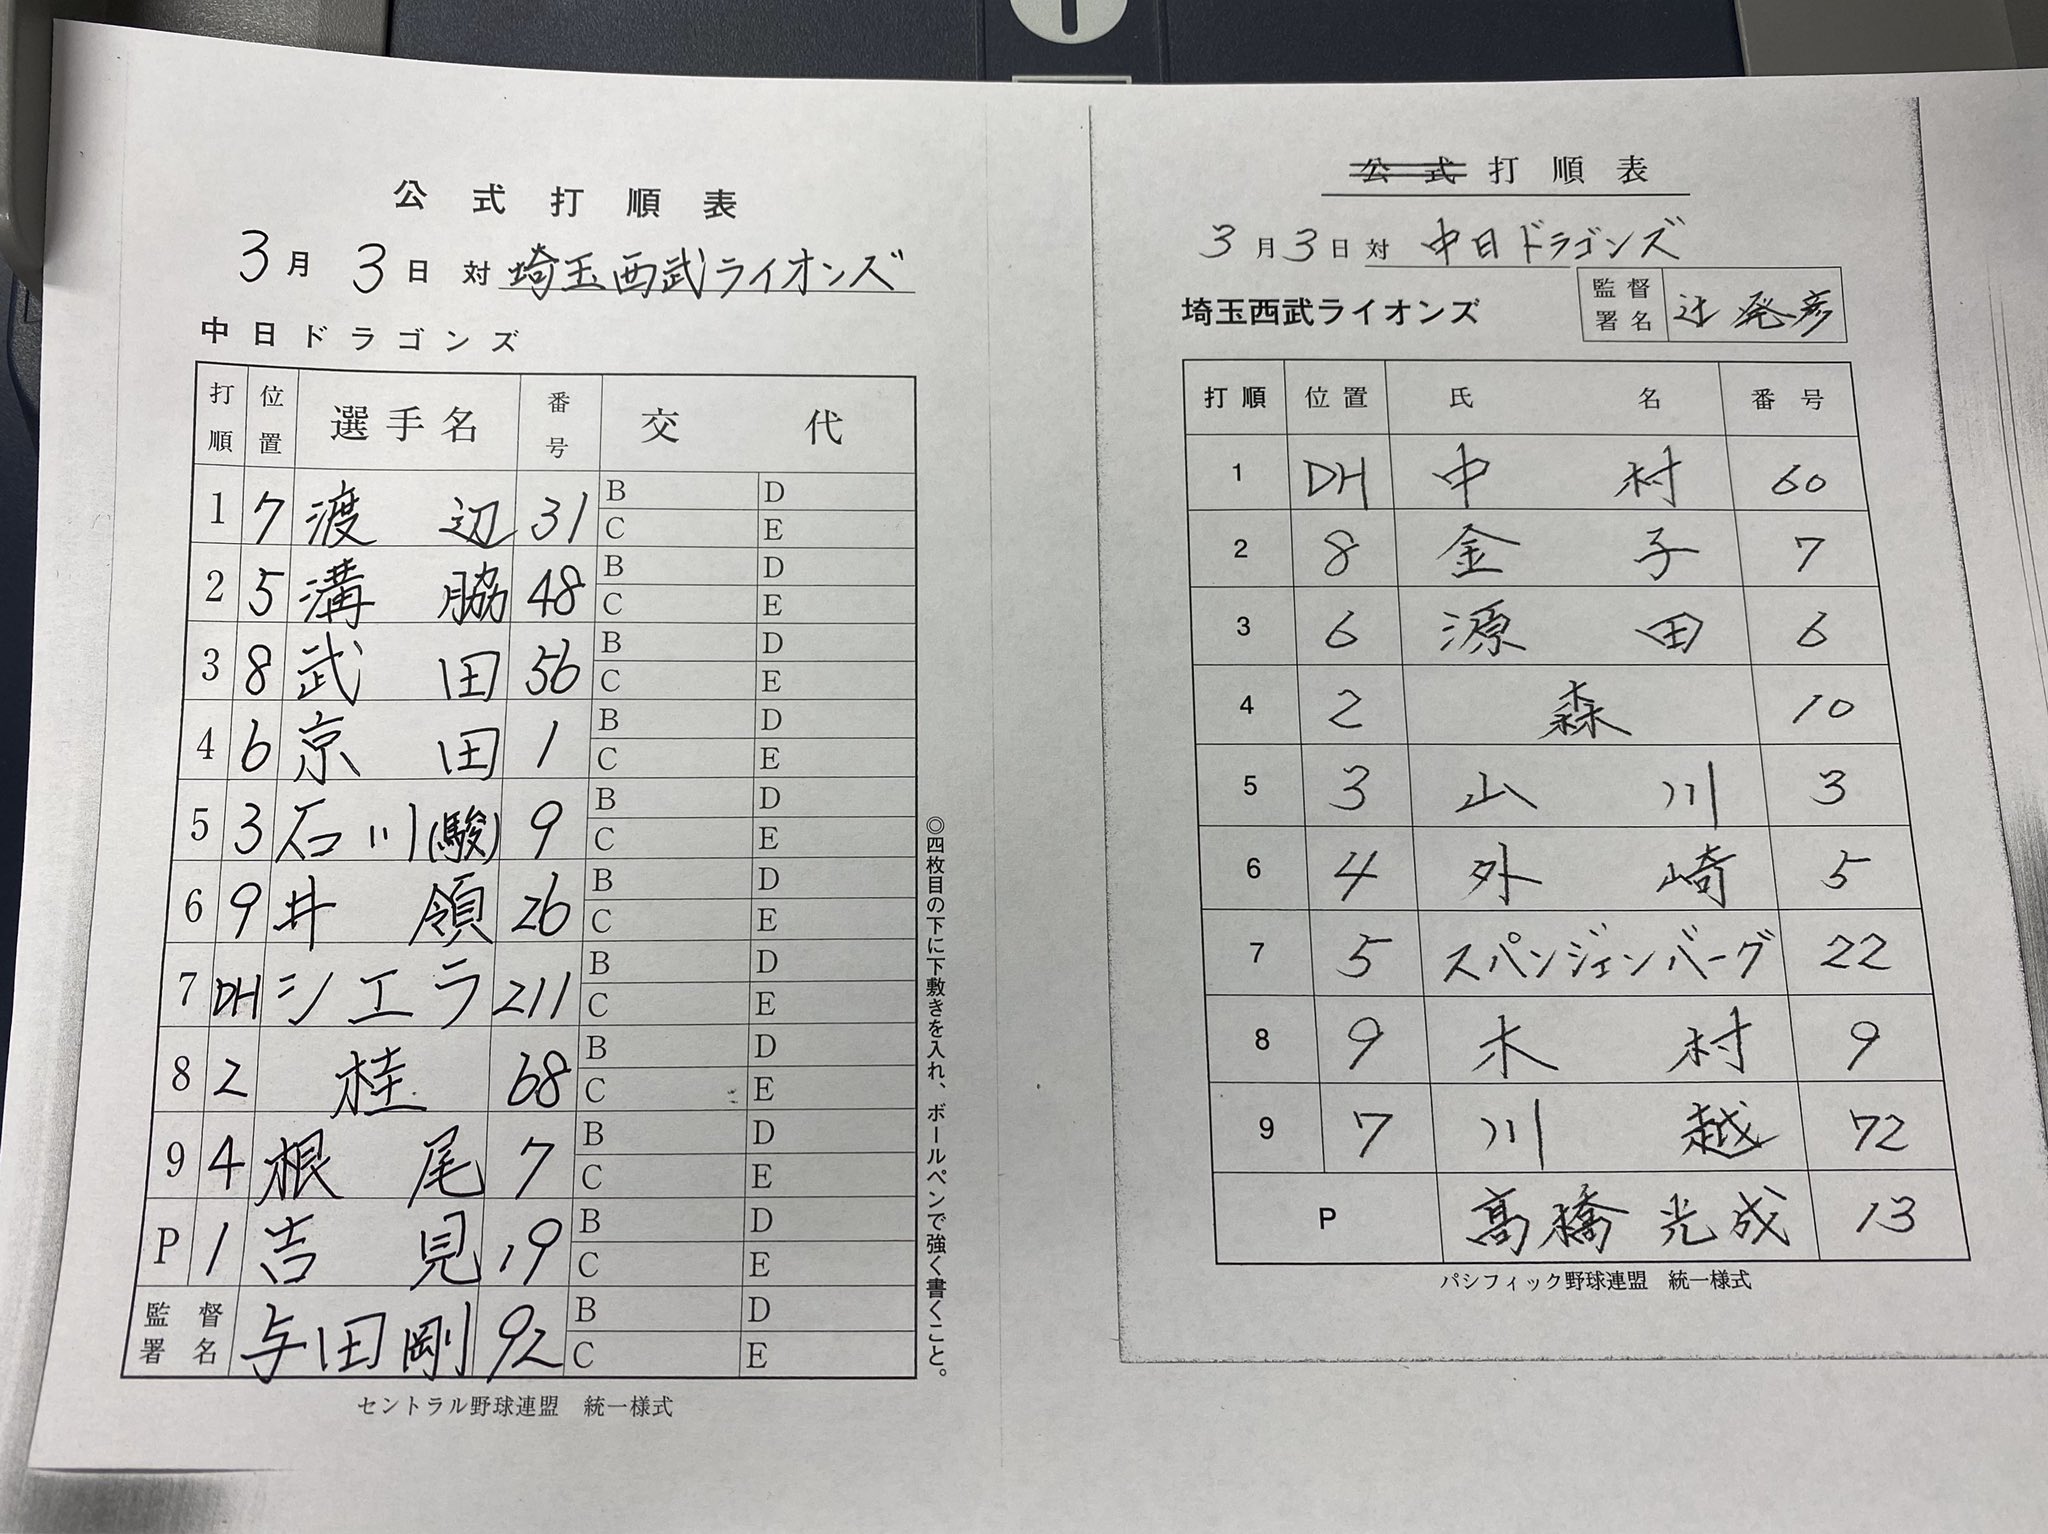 公式打順表
3月3日 対 埼玉西武ライオンズ
中日ドラゴンズ
打順 位置 選手名 番号 交代
1 7 渡辺 31 B D
C E
2 5 溝脇 48 B D
C E
3 8 武田 56 B D
C E
4 6 京田 1 B D
C E
5 3 石川(駿) 9 B D
C E
6 9 井領 26 B D
C E
7 DH シエラ 211 B D
C E
8 2 桂 68 B D
C E
9 4 根尾 7 B D
C E
P 1 吉見 19 B D
C E
監督署名 与田剛 92 B D
C E
セントラル野球連盟 統一様式
◎四枚目の下に下敷きを入れ、ボールペンで強く書くこと。
公式打順表
3月3日 対 中日ドラゴンズ
埼玉西武ライオンズ 監督署名 辻発彦
打順 位置 氏名 番号
1 DH 中村 60
2 8 金子 7
3 6 源田 6
4 2 森 10
5 3 山川 3
6 4 外崎 5
7 5 スパンジェンバーグ 22
8 9 木村 9
9 7 川越 72
P 髙橋光成 13
パシフィック野球連盟 統一様式